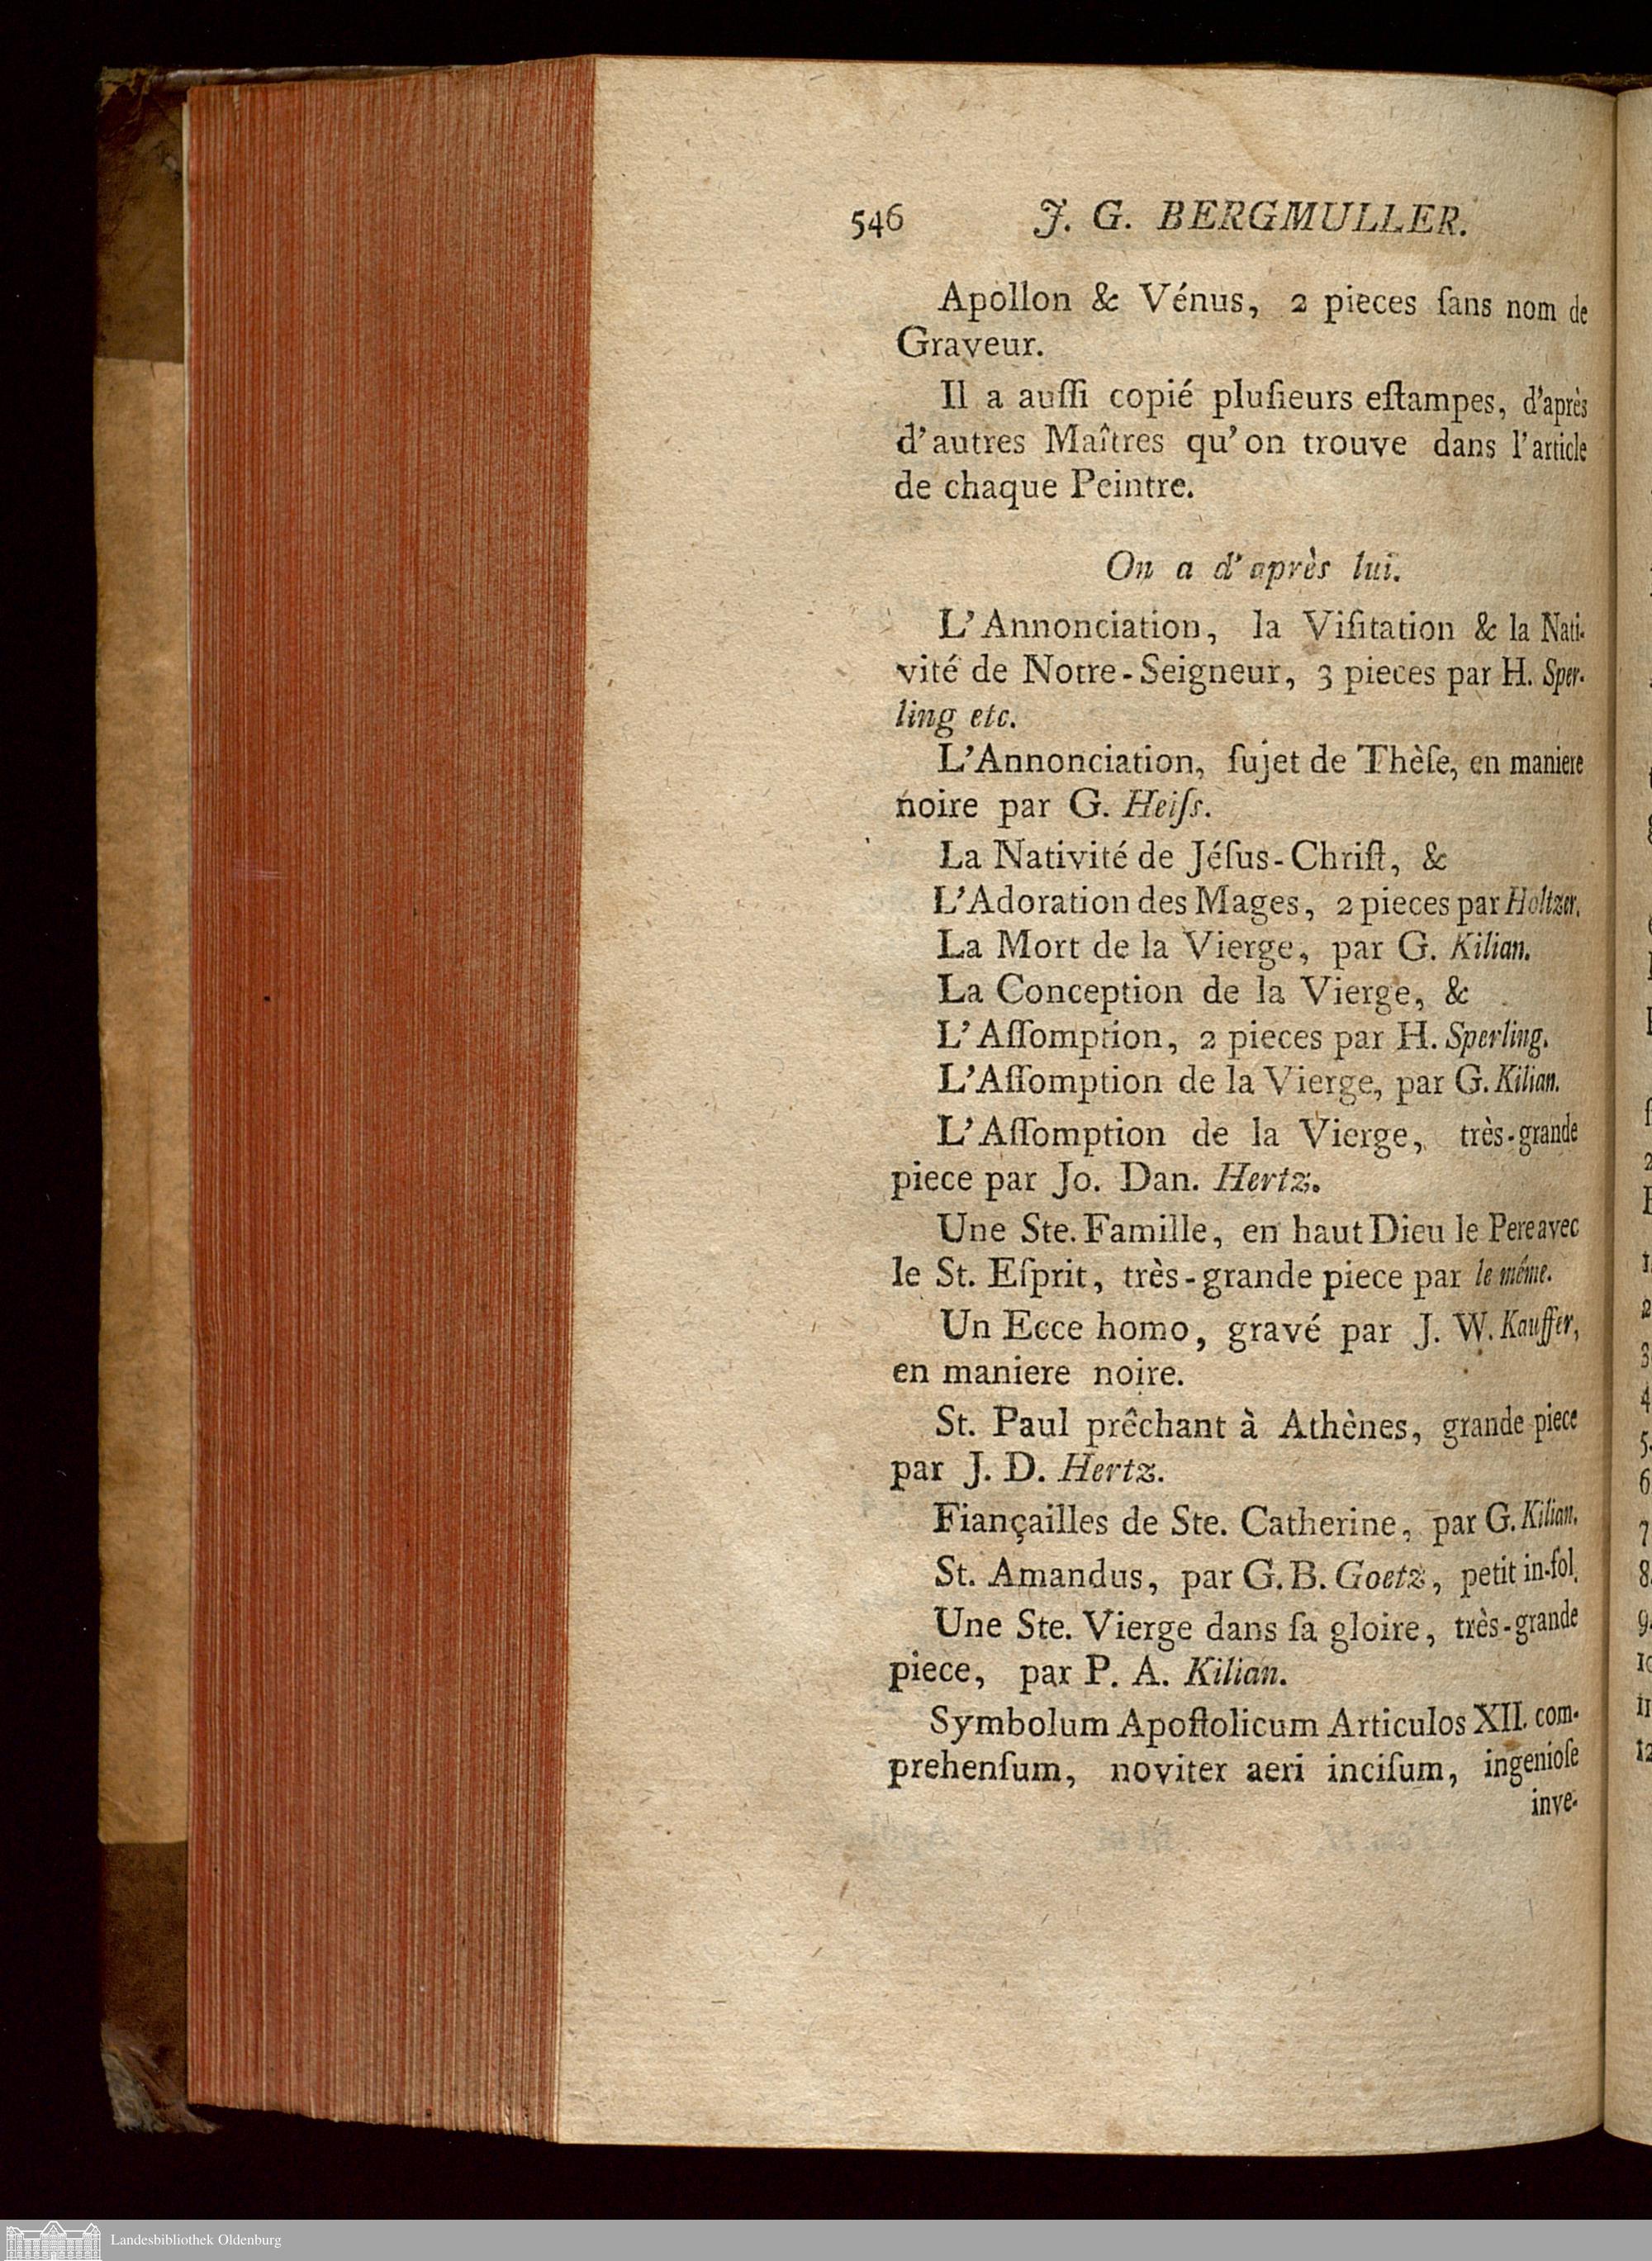 546 J. G. BERGMULLER.
Apollon & Vénus, 2 pieces ſans nom de
Graveur.
Il a auſſi copié pluſieurs eſtampes, d'après
d'autres Maîtres qu'on trouve dans l'article
de chaque Peintre.
On a d'après lui.
L'Annonciation, la Viſitation & la Nati-
vité de Notre-Seigneur, 3 pieces par H. Sper-
ling etc.
L'Annonciation, ſujet de Thèſe, en maniere
noire par G. Heiſs.
La Nativité de Jéſus-Chriſt, &
L'Adoration des Mages, 2 pieces par Holtzer.
La Mort de la Vierge, par G. Kilian.
La Conception de la Vierge, &
L'Aſſomption, 2 pieces par H. Sperling.
L'Aſſomption de la Vierge, par G. Kilian.
L'Aſſomption de la Vierge, très-grande
piece par Jo. Dan. Hertz.
Une Ste. Famille, en haut Dieu le Pere avec
le St. Eſprit, très-grande piece par le même.
Un Ecce homo, gravé par J. W. Kauffer,
en maniere noire.
St. Paul prêchant à Athènes, grande piece
par J. D. Hertz.
Fiançailles de Ste. Catherine, par G. Kilian.
St. Amandus, par G. B. Goetz, petit in-fol.
Une Ste. Vierge dans ſa gloire, très-grande
piece, par P. A. Kilian.
Symbolum Apoſtolicum Articulos XII. com-
prehenſum, noviter aeri inciſum, ingenioſe
inve-
Landesbibliothek Oldenburg